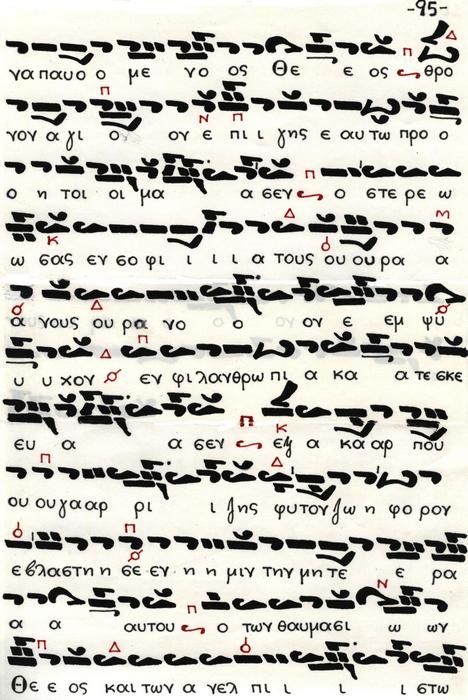 -95-
γα παυο ο με νο ος Θε ε ος θρο
νον α γι ον ον ε πι ι γης ε αυ τω προ ο
ο η τοι οι μα α σεν ο στε ρε ω
ω σας εν σο φι ι ι ι α τους ου ου ρα α
α νους ου ρα νο ο ον ε εμ ψυ
υ υ χον εν φι λανθρω πι α κα α τε σκε
ευ α α σεν εκ α κα αρ που
ου ου γα αρ ρι ι ζης φυτον ζω η φο ρον
ε βλαστη η σε εν η η μιν την μη τε ε ρα
α α αυτου ο των θαυμασι ω ων
Θε ε ος και των α γελ πι ι ι ι στω